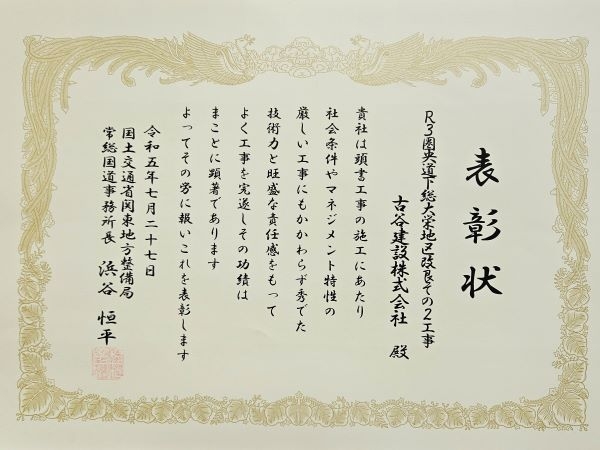 表彰状
R3圏央道下総大栄地区改良その2工事
古谷建設株式会社 殿
貴社は頭書工事の施工にあたり
社会条件やマネジメント特性の
厳しい工事にもかかわらず秀でた
技術力と旺盛な責任感をもって
よく工事を完遂しその功績は
まことに顕著であります
よってその労に報いこれを表彰します
令和五年七月二十七日
国土交通省関東地方整備局
常総国道事務所長 浜谷 恒平